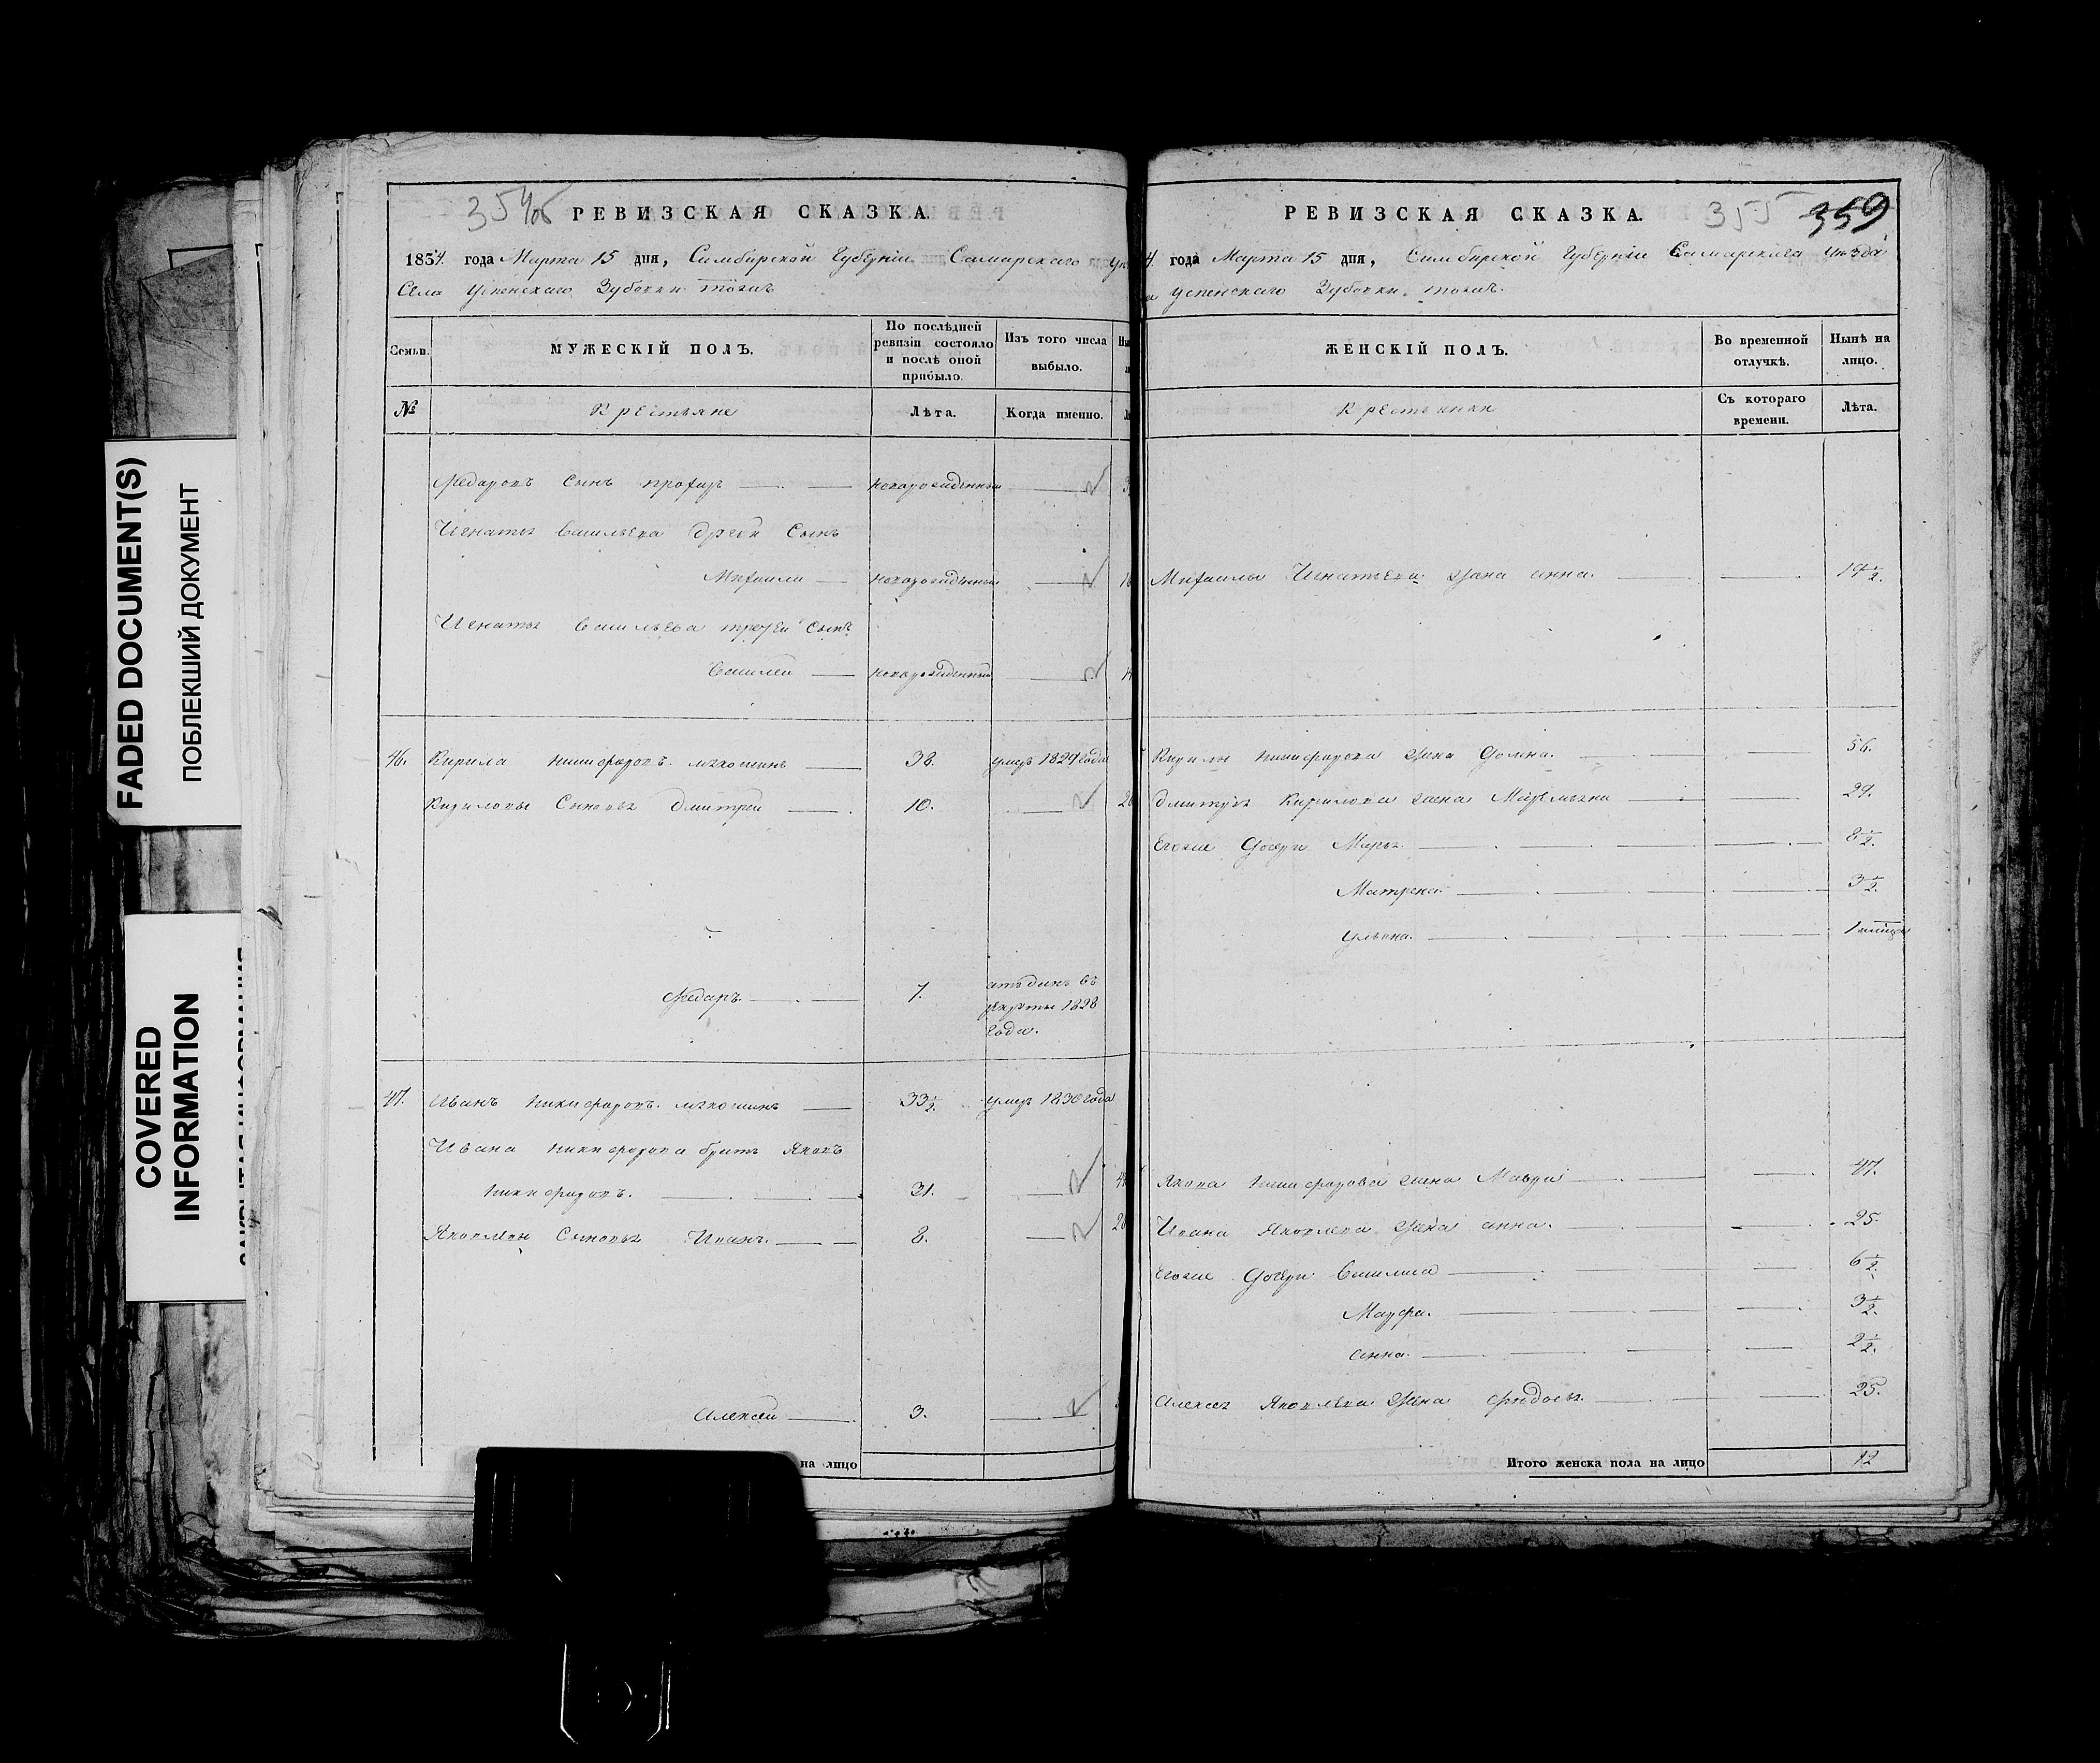 FADED DOCUMENT(S)
ПОБЛЕКШИЙ ДОКУМЕНТ
COVERED
INFORMATION
РЕВИЗСКАЯ СКАЗКА.
1834. года Марта 15 дня, Симбирской Губерніи Самарскаго
Села Успенскаго Зубовки тожъ
Семьи. МУЖЕСКІЙ ПОЛЪ. По послѣдней ревизіи состояло и послѣ оной прибыло. Изъ того числа выбыло.
№ Крестьяне Лѣта. Когда именно.
Федоровъ Сынъ новорожденный
Игнатья Васильева Сынъ
Михаила новорожденный
Игнатья Васильева третей Сынъ
Василей новорожденный
46. Кирила Никифоровъ 38. умеръ 1829 года
Кириловы Сыновья Дмитрей 10.
Федоръ 7. отъданъ въ
рекруты 1828
года.
47. Иванъ Никифоровъ 33½. умеръ 1830 года
Ивана Никифорова братъ Яковъ
Никифоровъ. 31.
Яковлевы Сыновья Иванъ 8.
Алексей 3.
на лицо
РЕВИЗСКАЯ СКАЗКА. 355 359
4. года Марта 15 дня, Симбирской Губерніи Самарскаго уѣзда
Успенскаго Зубовки тожъ.
ЖЕНСКІЙ ПОЛЪ. Во временной отлучкѣ. Нынѣ на лицо.
Съ котораго времени. Лѣта.
Михаилы Игнатьева жена анна. 19½.
Кирилы Никифорова жена Домна. 56.
Дмитрія Кирилова жена 29.
Егоже Дочери Марья 8½.
Матрена 3½.
Ульяна.
Якова Никифорова жена Мавра 47.
Ивана Яковлева жена анна. 25.
Егоже Дочери Василиса 6½.
Марфа. 3½.
анна. 2½.
Алексея Яковлева жена Федосья 25.
Итого женска пола на лицо 12